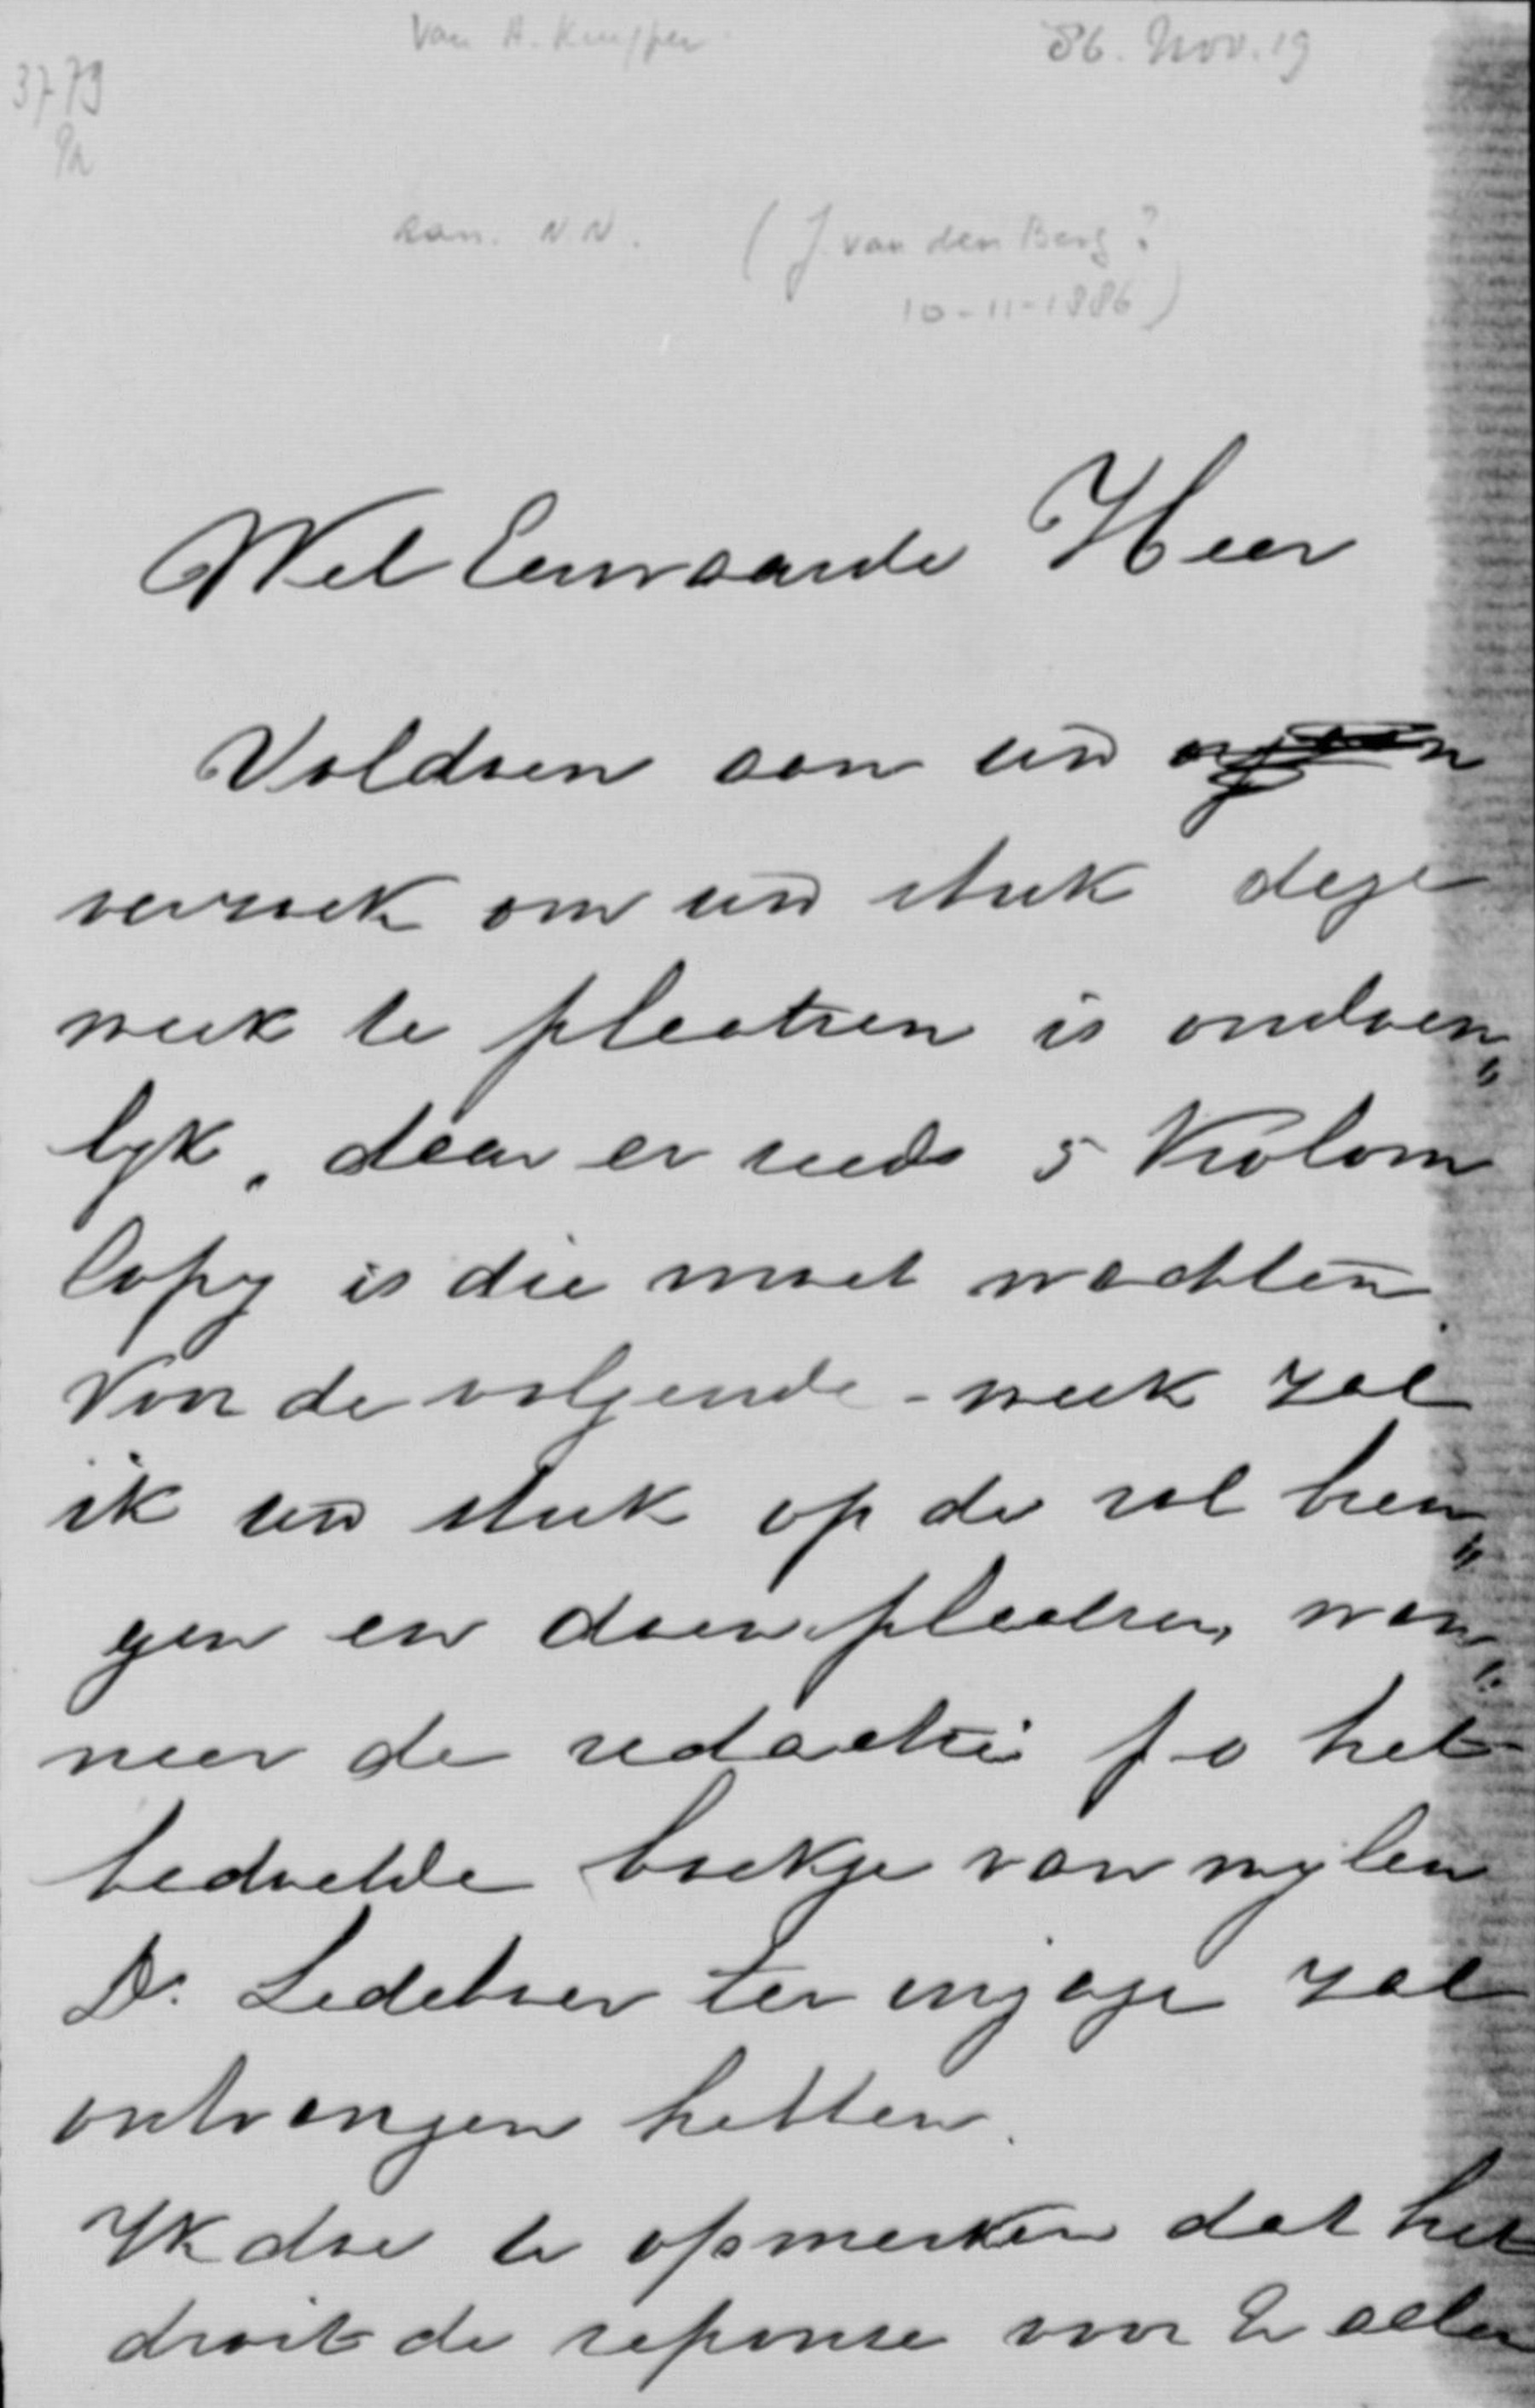 Van A. Kuyper
86. Nov. 19
3779
aan. N.N. (J van den Berg?
10-11-1886)
Wel Eerwaarde Heer
Voldoen aan uw
verzoek om uw stuk deze
week te plaatsen is ondoen„
lyk, daar er reeds 5 Kolom
Copy is die moet wachten.
Voor de volgende week zal
ik uw stuk op de rol bren„
gen en doen plaatsen, wan„
neer de redactie f-o het
bedoelde boekje van wylen
Ds. Ledeboer ter inzage zal
ontvangen hebben.
Ik doe U opmerken dat het
droit de reponse voor U alleen